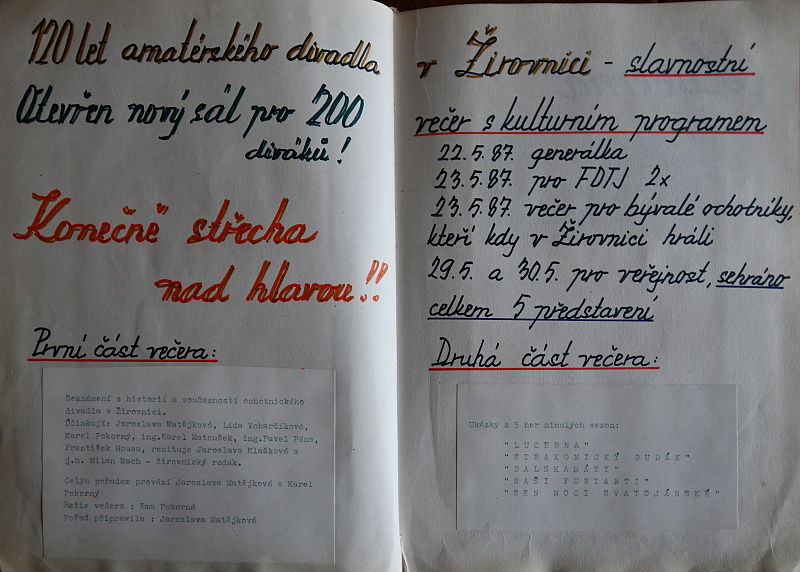 120 let amatérského divadla
Otevřen nový sál pro 200
diváků!
Konečně střecha
nad hlavou!!
První část večera:
Seznámení s historií a současností ochotnického
divadla v Žirovnici.
Účinkují: Jaroslava Matějková, Lída Voharčíková,
Karel Pokorný, ing.Karel Matoušek, ing.Pavel Pána,
František Housa, recituje Jaroslava Klašková a
j.h. Milan Mach - žirovnický rodák.
Celým pořadem provází Jaroslava Matějková a Karel
Pokorný
Režie večera : Ema Pokorná
Pořad připravila : Jaroslava Matějková
v Žirovnici - slavnostní
večer s kulturním programem
22.5.87. generálka
23.5.87. pro FDTJ 2x
23.5.87. večer pro bývalé ochotníky,
kteří kdy v Žirovnici hráli
29.5. a 30.5. pro veřejnost, sehráno
celkem 5 představení
Druhá část večera:
Ukázky z 5 her minulých sezon:
"LUCERNA"
"STRAKONICKÝ DUDÁK"
"DALSKABÁTY"
"NAŠI FURIANTI"
"SEN NOCI SVATOJÁNSKÉ"